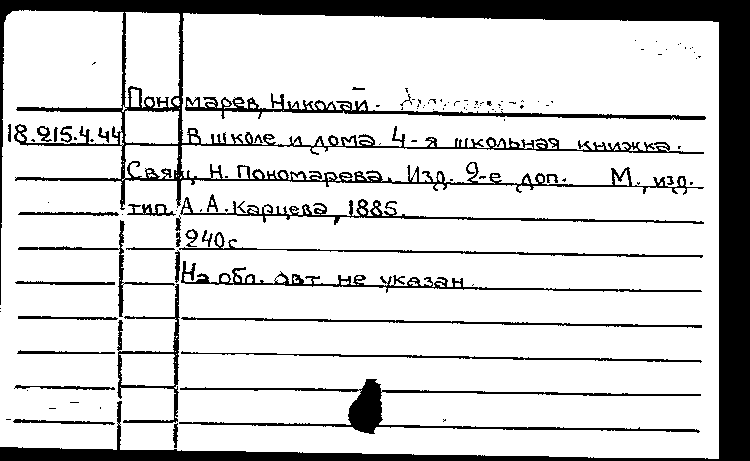 Пономарев, Николай.
18.215.4.44 В школе и дома. 4-я школьная книжка.
Свящ. Н. Пономарева. Изд. 2-е доп. М., изд.
тип. А. А. Карцева, 1885.
240 с.
На обл. авт. не указан